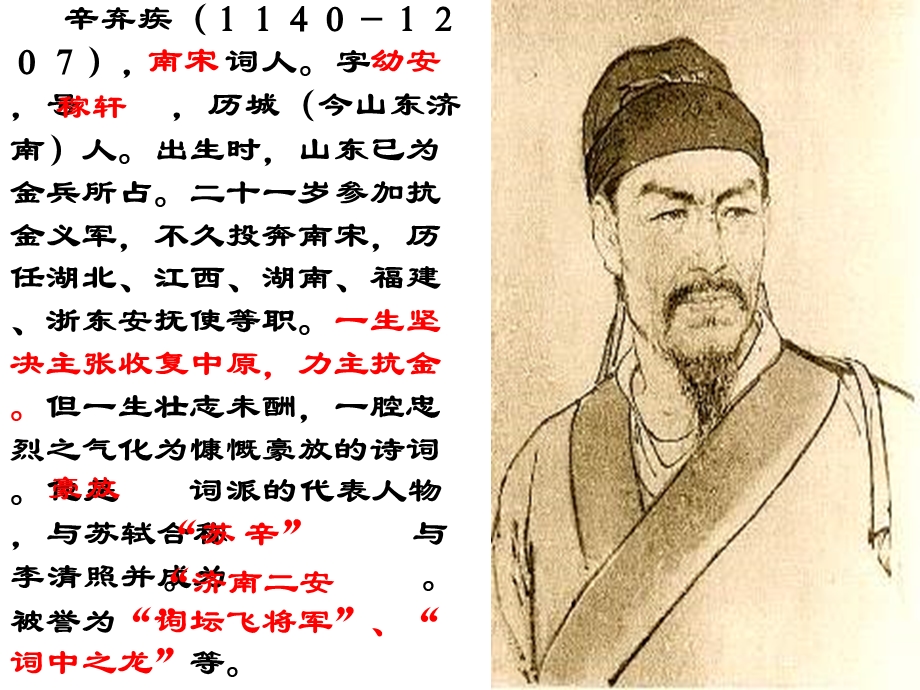 辛弃疾（１１４０－１２
０７），南宋词人。字幼安
，号稼轩，历城（今山东济
南）人。出生时，山东已为
金兵所占。二十一岁参加抗
金义军，不久投奔南宋，历
任湖北、江西、湖南、福建
、浙东安抚使等职。一生坚
决主张收复中原，力主抗金
。但一生壮志未酬，一腔忠
烈之气化为慷慨豪放的诗词
。豪放词派的代表人物
，与苏轼合称“苏辛”与
李清照并成为“济南二安。
被誉为“词坛飞将军”、“
词中之龙”等。